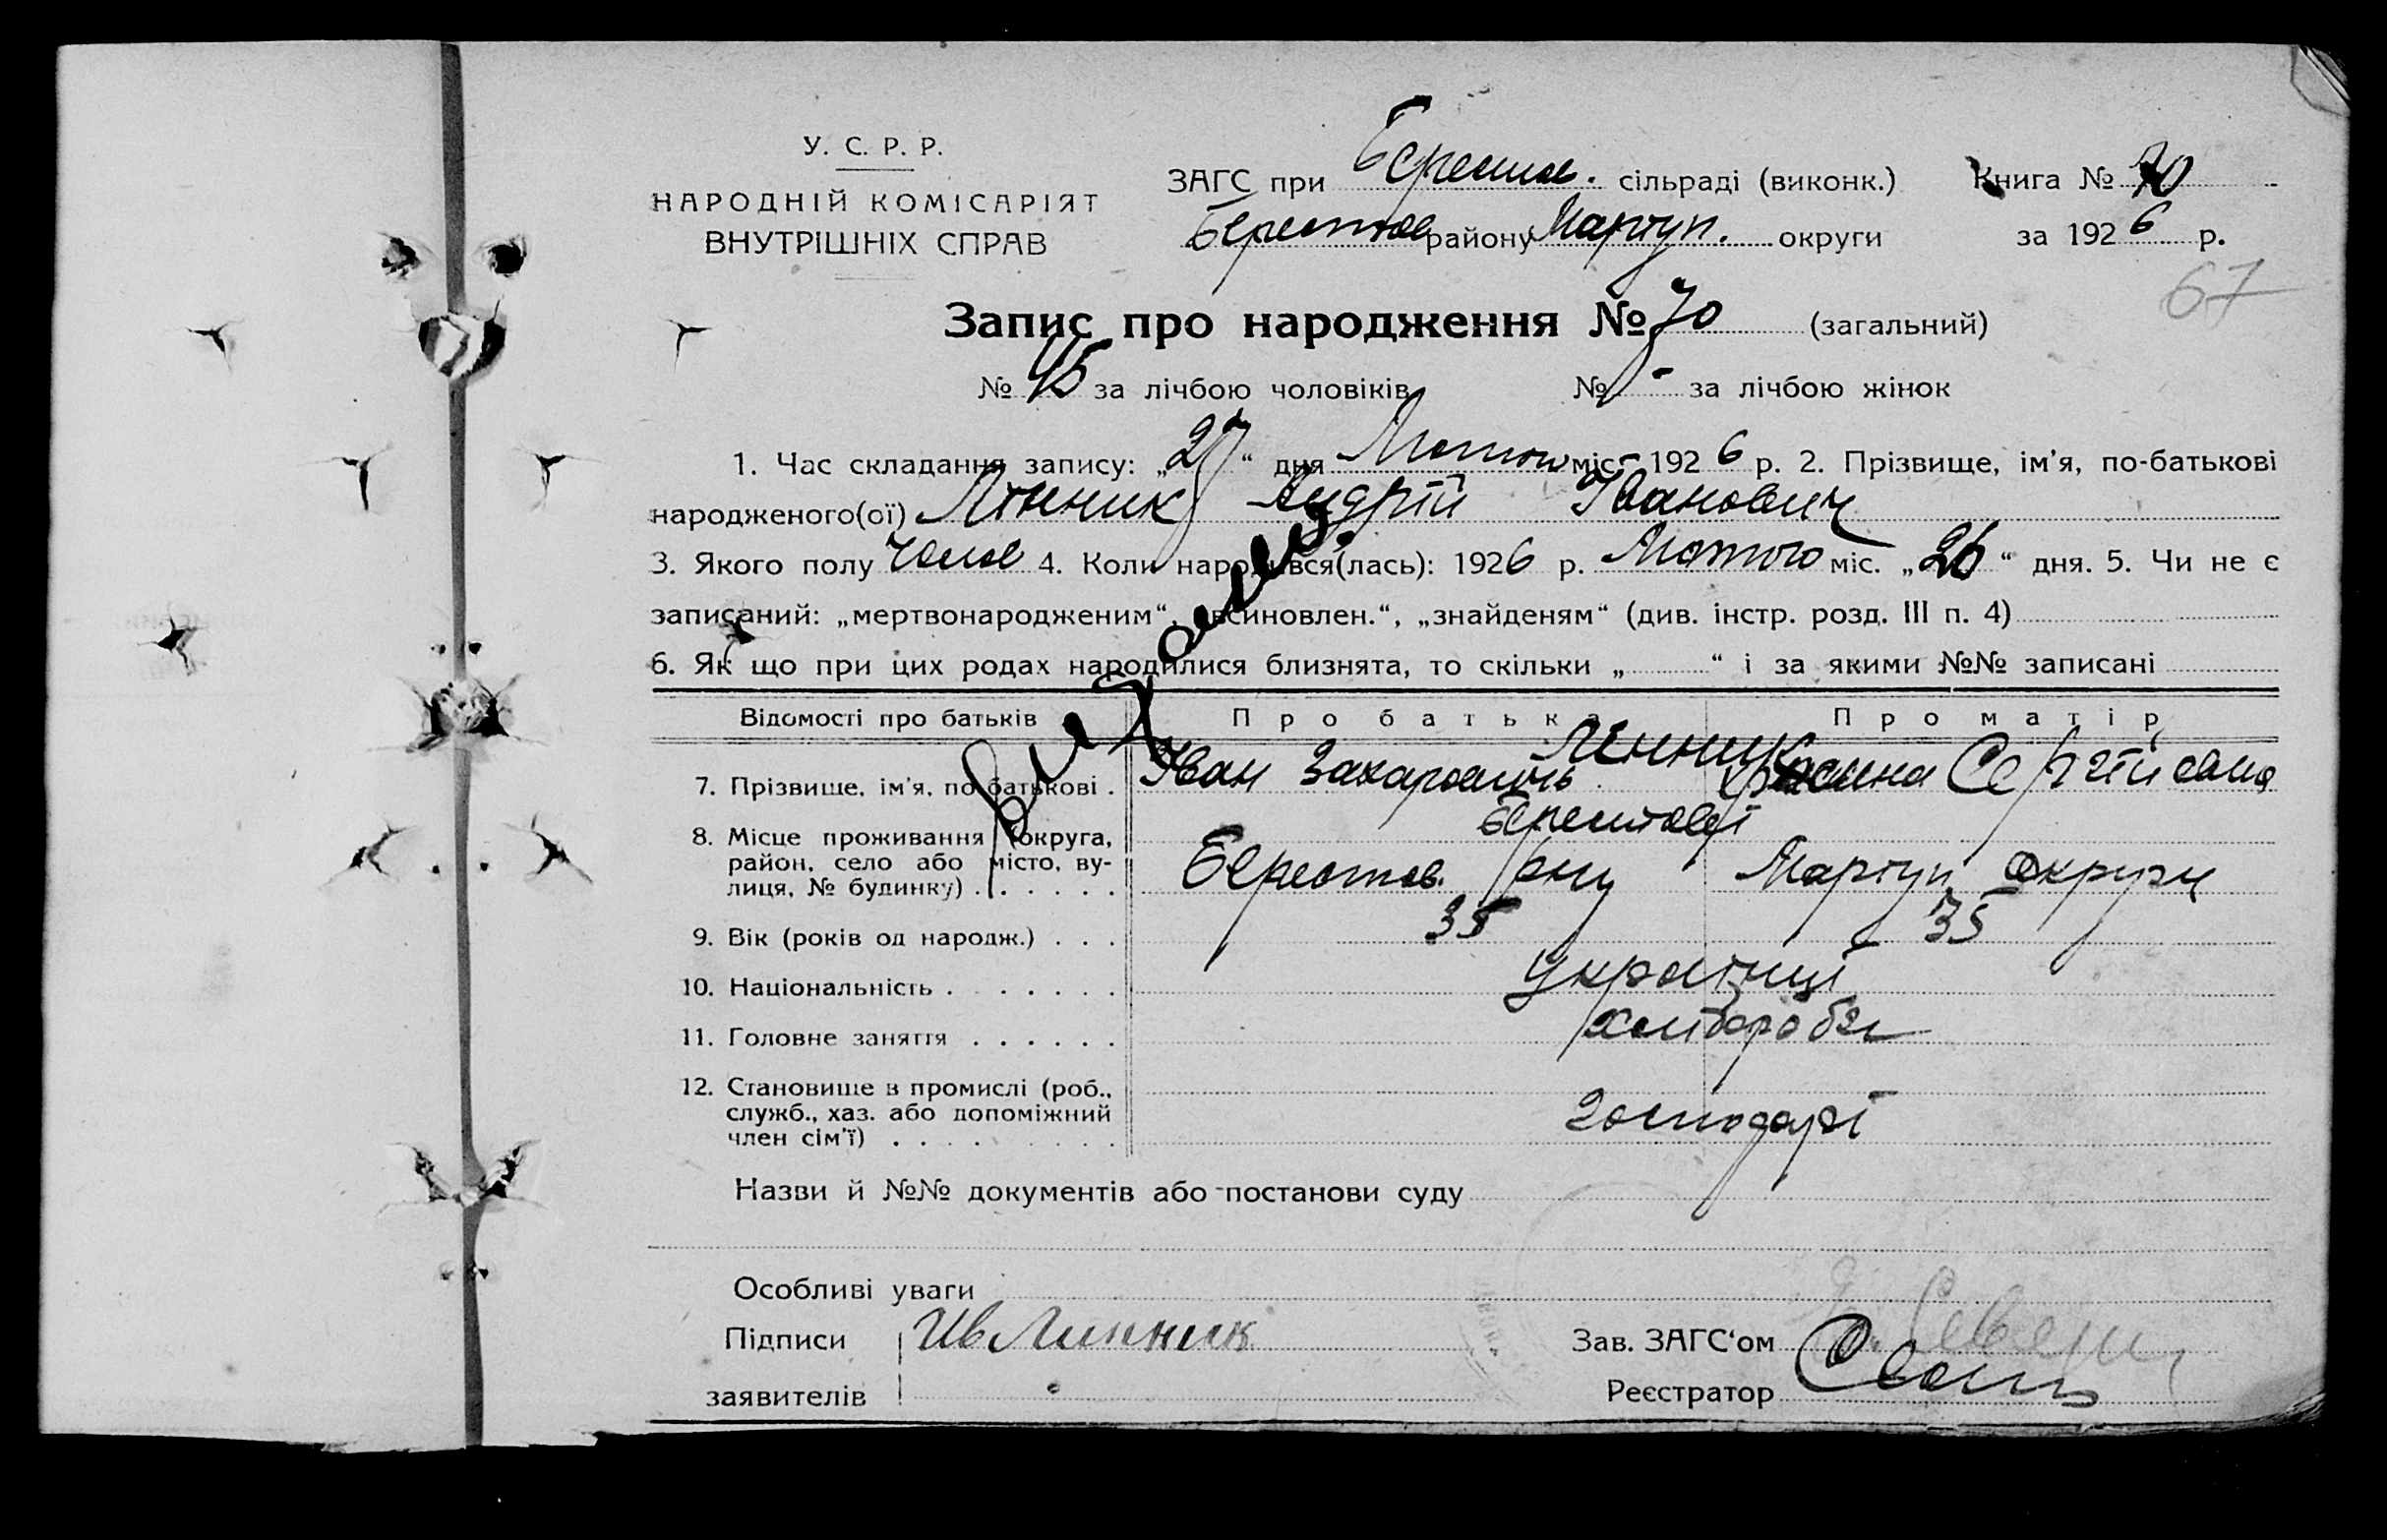 У. С. Р. Р.
НАРОДНІЙ КОМІСАРІЯТ
ВНУТРІШНІХ СПРАВ
ЗАГС при сільраді (виконк.)
Берестов району Маріуп. округи
Книга № 70
за 1926 р.
67
Запис про народження № 70 (загальний)
№ 45 за лічбою чоловіків № - за лічбою жінок
1. Час складання запису: „27“ дня Лютого міс. 1926 р. 2. Прізвище, ім'я, по-батькові
народженого(ої) Лінник Андрій Іванович
3. Якого полу чолов 4. Коли народився(лась): 1926 р. Лютого міс. „26“ дня. 5. Чи не є
записаний: „мертвонародженим“, „всиновлен.“, „знайденям“ (див. інстр. розд. III п. 4)
6. Як що при цих родах народилися близнята, то скільки „ “ і за якими №№ записані
Відомості про батьків Про батька Про матір
Лінник
7. Прізвище, ім'я, по батькові . Іван Захарович Сергіївна
8. Місце проживання (округа,
район, село або місто, ву-
лиця, № будинку) . . . . . . Берестов. р-ну Маріуп. округи
9. Вік (років од народж.) . . . 35 35
10. Національність . . . . . . . українці
11. Головне заняття . . . . . . хлібороби
12. Становище в промислі (роб.,
служб., хаз. або допоміжний
член сім'ї) . . . . . . . . . господарі
Назви й №№ документів або постанови суду
Особливі уваги
Підписи Ив Линник
заявителів
Зав. ЗАГС'ом
Реєстратор